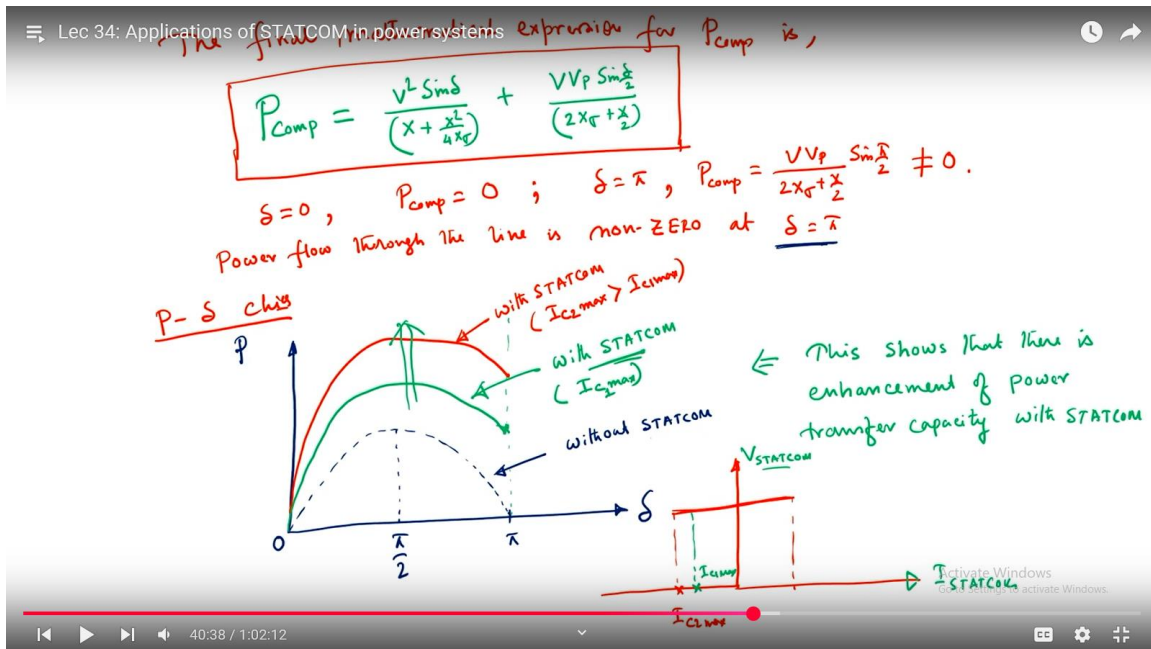 Lec 34: Applications of STATCOM in power systems
The final mathematical expression for Pcomp is,
Pcomp = V² Sinδ / (X + X²/4Xσ) + VVp Sin δ/2 / (2Xσ + X/2)
δ=0, Pcomp = 0 ; δ = π, Pcomp = VVp / 2Xσ + X/2 Sin π/2 ≠ 0.
Power flow through the line is non-ZERO at δ = π
P-δ chis
P
with STATCOM
(Ic2max > Ic1max)
with STATCOM
(Ic1max)
without STATCOM
0
π/2
π
δ
⇐ This shows that there is
enhancement of power
transfer capacity with STATCOM
VSTATCOM
Ic1max
Ic2max
ISTATCOM
Activate Windows
Go to Settings to activate Windows.
40:38 / 1:02:12
CC